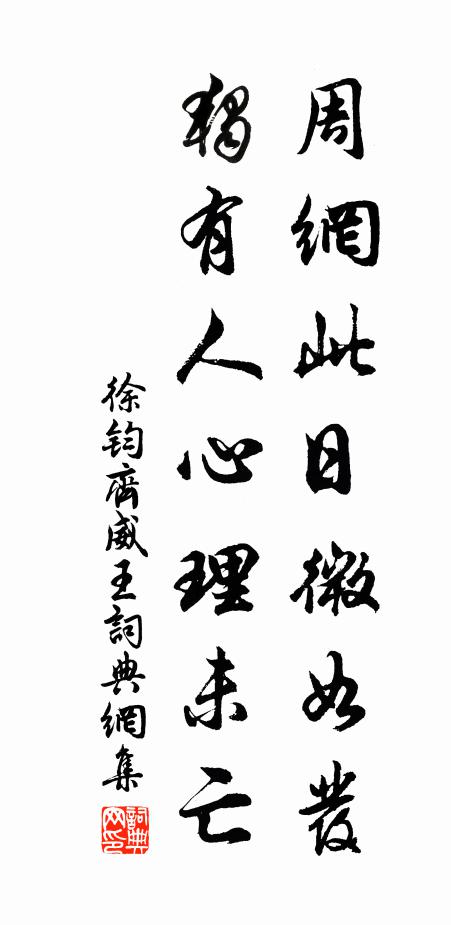 周網此日微如發
獨有人心理未亡
徐鈞齊威王詞典網集
詞典
网印